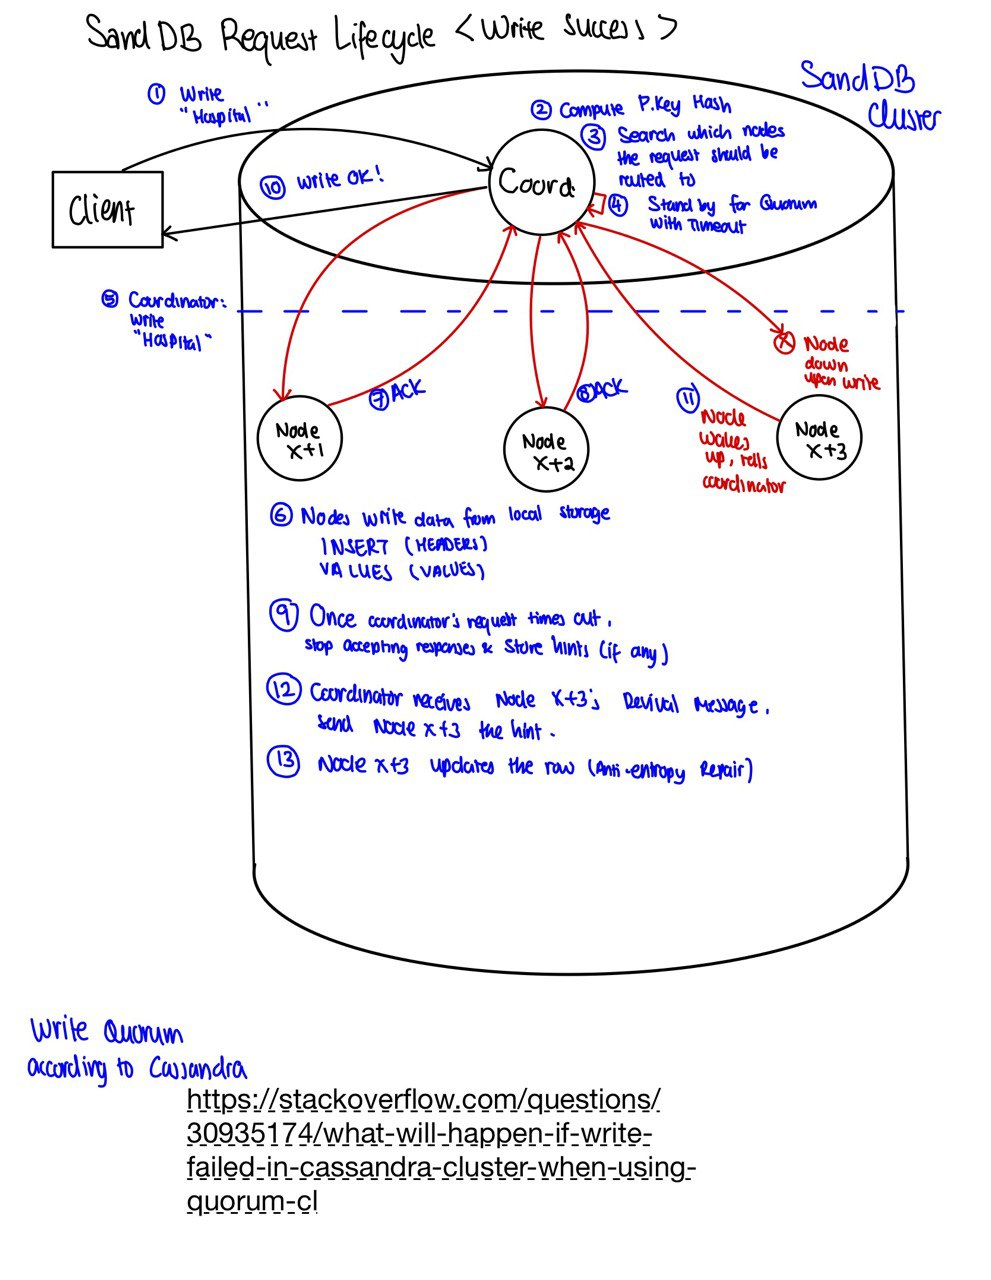 SandDB Request Lifecycle <Write Success>
SandDB
Cluster
① Write
"Hospital"
② Compute P.Key Hash
③ Search which nodes
the request should be
routed to
④ Stand by for Quorum
with Timeout
Coord.
Client
⑩ Write OK!
⑤ Coordinator:
Write
"Hospital"
X Node
down
upon write
⑦ ACK
⑧ ACK
⑪ Node
wakes
up, tells
coordinator
Node
X+1
Node
X+2
Node
X+3
⑥ Nodes write data from local storage
INSERT (HEADERS)
VALUES (VALUES)
⑨ Once coordinator's request times out,
stop accepting responses & store hints (if any)
⑫ Coordinator receives Node X+3's Revival Message,
send Node X+3 the hint.
⑬ Node X+3 updates the row (Anti-entropy Repair)
Write Quorum
according to Cassandra
https://stackoverflow.com/questions/
30935174/what-will-happen-if-write-
failed-in-cassandra-cluster-when-using-
quorum-cl